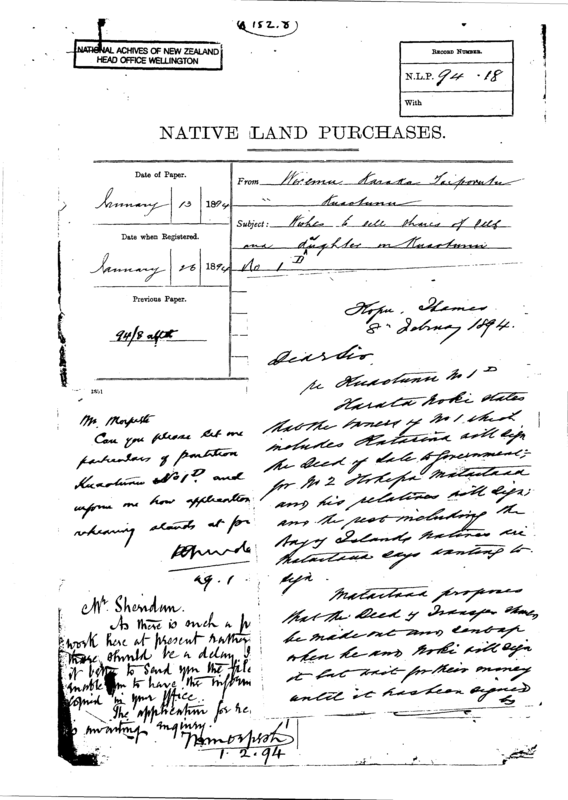 A 152.8
NATIONAL ACHIVES OF NEW ZEALAND
HEAD OFFICE WELLINGTON
RECORD NUMBER.
N.L.P. 94 . 18
With
NATIVE LAND PURCHASES.
Date of Paper.
January 13 1894
Date when Registered.
January 26 1894
Previous Paper.
94/8
1851
From Wiremu Karaka
" Kuaotunu
Subject: Wishes to sell shares of self
and daughter in Kuaotunu
No 1 D
Mr. Morpeth
Can you please let me
particulars of partition
Kuaotunu No 1 D. and
inform me how application
rehearing stands at
Mr. Sheridan.
As there is such a p
work here at present rather
there should be a delay I
it better to send you the file
enable to have the inform
copied in your office.
The application for re
is awaiting inquiry.
1.2.94
Kopu. Thames
8th February 1894.
Dear Sir
re Kuaotunu No 1 D
Harata Noki states
that the owners of No 1 which
includes will sign
the Deed of Sale to Government:
for No 2 Hohepa Mataitaua
and his relatives will sign;
and the rest including the
Bay of Islands natives are
Mataitaua says wanting to
sign.
Mataitaua proposes
that the Deed of Transfer
be made out and sent up
when he and Noki will sign
it but wait for their money
until it has been signed
by